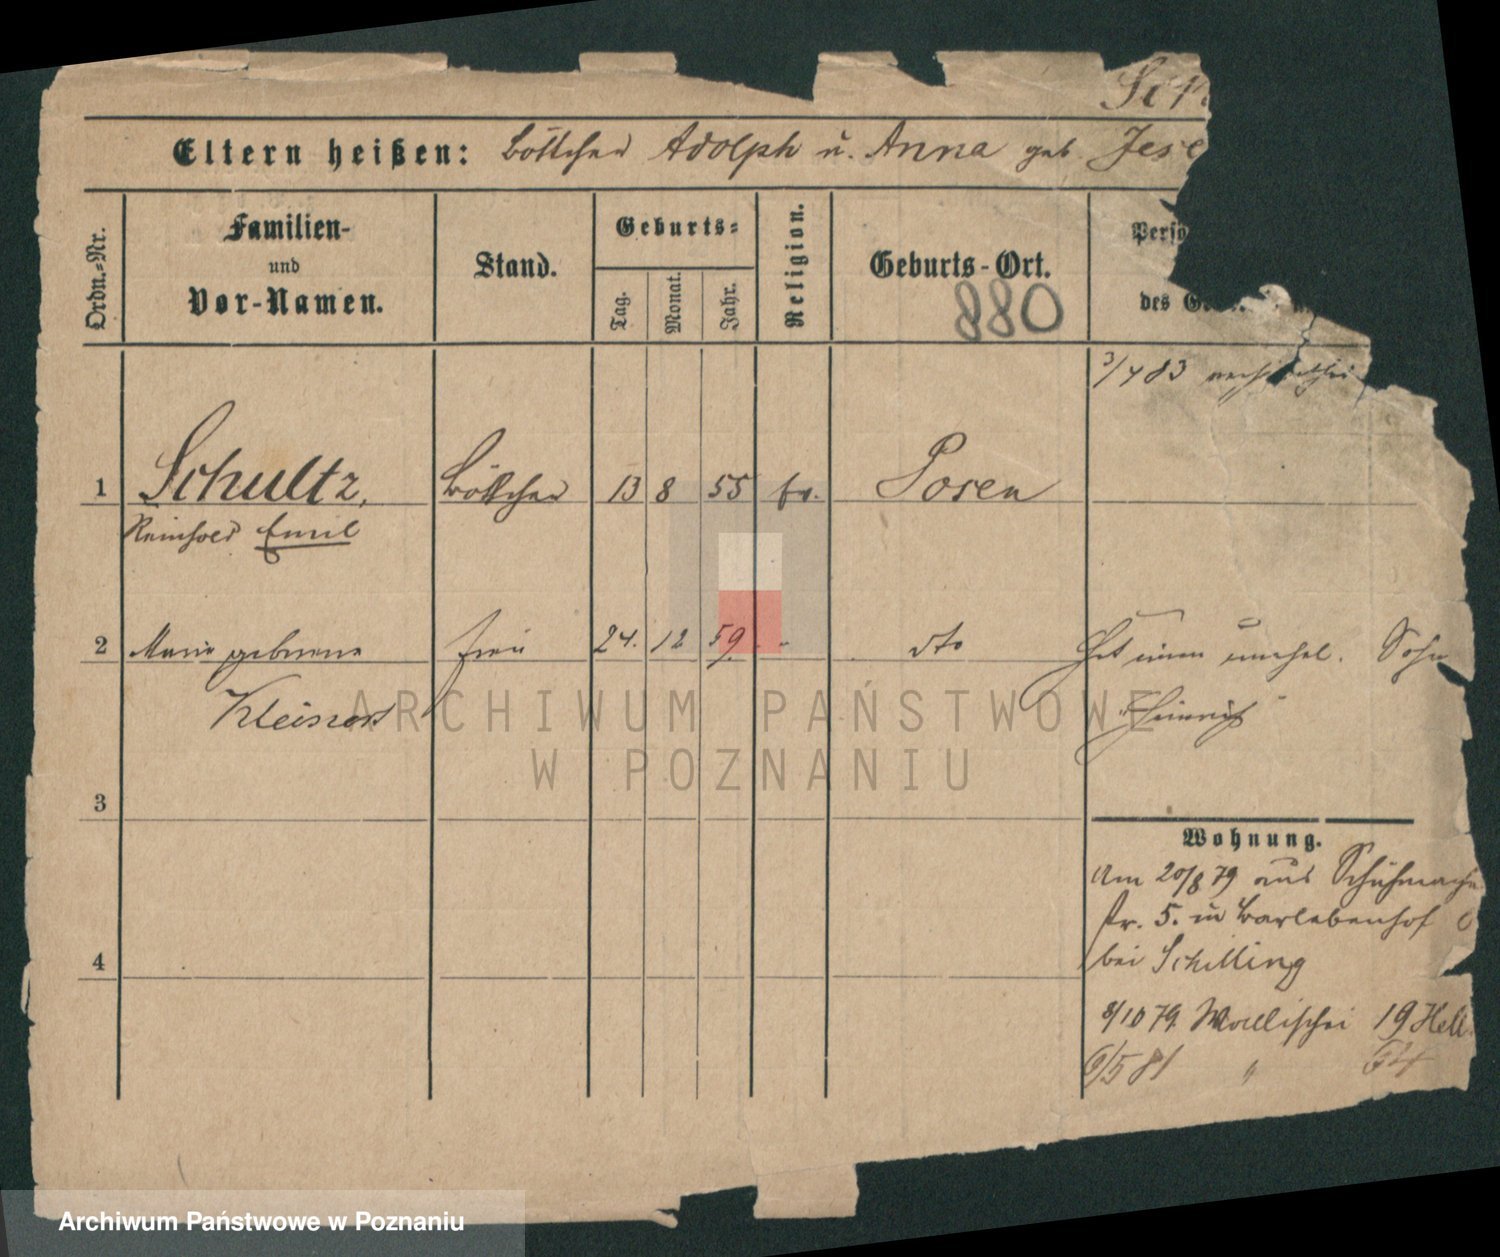 Sch
Eltern heißen: Böttcher Adolph u. Anna geb. Jese
Ordn.-Nr.
Familien-
und
Vor-Namen.
Stand.
Geburts-
Tag.
Monat.
Jahr.
Religion.
Geburts-Ort.
880
Perso
des G
3/4 83
1 Schultz, Böttcher 13 8 55 ev. Posen
Reinhold Emil
2 Marie geborene Frau 24. 12 59. " dto Hat einen unehel. Sohn
"Heinrich"
3
4
Wohnung.
Am 20/8 79 aus Schuhmache
str. 5. in Barlebenshof
bei Schilling
8/10 79 Wallischei 19 Hell
6/5 81 " 64
ARCHIWUM PAŃSTWOWE
W POZNANIU
Archiwum Państwowe w Poznaniu